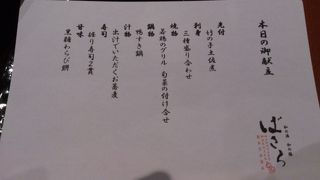 本日の御献立
先付
竹の子土佐煮
刺身
三種盛り合わせ
焼物
若鶏のグリル 旬菜の付け合せ
鍋物
鴨すき鍋
汁物
出汁でいただくお蕎麦
寿司
握り寿司2貫
甘味
黒糖わらび餅
ばさら